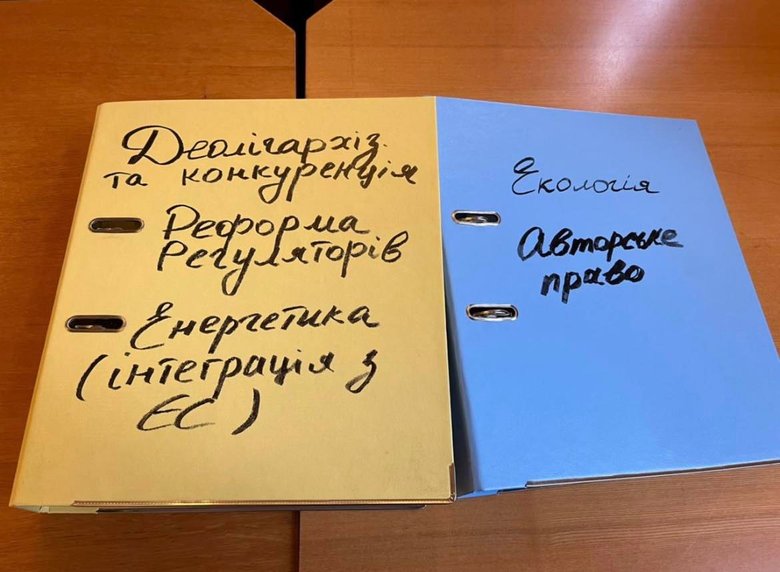 Деолігархіз.
та конкуренція
Реформа
Регуляторів
Енергетика
(інтеграція з
ЄС)
Екологія
Авторське
право